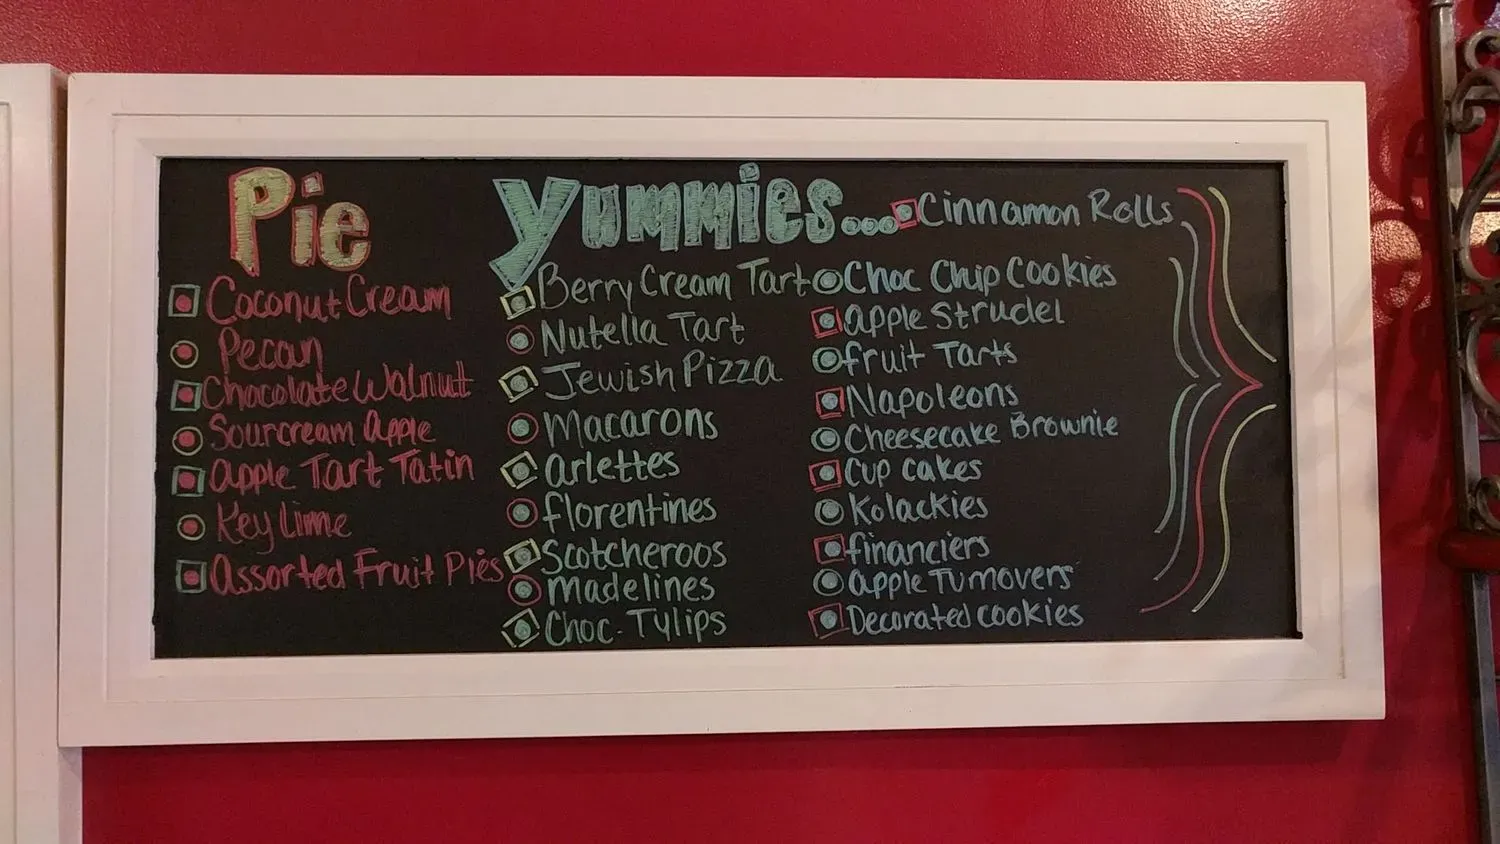 Pie
Coconut Cream
Pecan
Chocolate Walnut
Sourcream apple
apple Tart Tatin
Key Lime
assorted Fruit Pies
Yummies...
Berry Cream Tart
Nutella Tart
Jewish Pizza
Macarons
arlettes
florentines
Scotcheroos
madelines
Choc. Tylips
Cinnamon Rolls
Choc Chip Cookies
apple Strudel
fruit Tarts
Napoleons
Cheesecake Brownie
Cup cakes
Kolackies
financiers
apple Turnovers
Decorated cookies